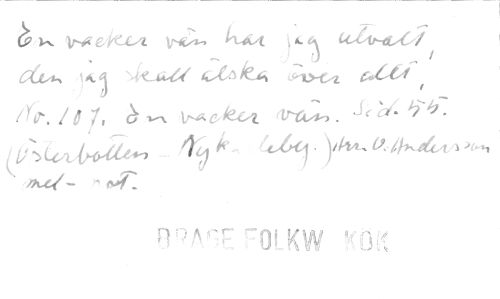 En vacker vän har jag utvalt,
den jag skall älska över allt,
No. 107. En vacker vän. Sid. 55.
(Österbotten - Nyk leby.) Arr. O. Andersson
mel-not.
BRAGE FOLKV KÖK